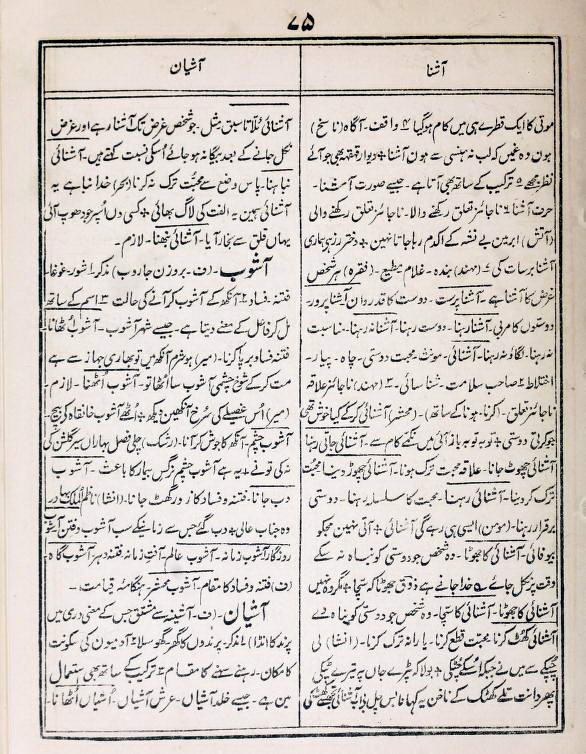 ۷۵
آشنا
آشیان
موتی کا ایک قطرے ہی میں کام ہوگیا ۴ واقف۔ آگاہ (ناسخ)
ہون وہ غمیں کہ لب نہ ہنسی سے ہون آشنا + دیوار قہقہہ بھی جو آئے
نظر مجھے ۵ ترکیب کے ساتھ بھی آتا ہے۔ جیسے صورت آشنا۔
حرف آشنا ۶ ناجائز تعلق رکھنے والا۔ ناجائز تعلق رکھنے والی
(آتش) ابر میں بے نشہ کے اکدم رہا جاتا نہین + دختر رز ہی ہماری
آشنا برسات کی ۷ (ہند) بندہ۔ غلام۔ مطیع۔ (فقرہ) ہر شخص
غرض کا آشنا ہے۔ آشنا پرست۔ دوست کا قدر دان آشنا پرور۔
دوستوں کا مربی۔ آشنا رہنا۔ دوست رہنا۔ آشنا نہ رہنا۔ مناسبت
نہ رہنا۔ لگاؤ نہ رہنا۔ آشنائی۔ مونث۔ محبت۔ دوستی۔ چاہ۔ پیار۔
اختلاط ۲ صاحب سلامت۔ شناسائی۔ ۳ (ہند) ناجائز علاقہ
ناجائز تعلق۔ (کرنا۔ ہونا کے ساتھ)۔ (محشر) آشنائی کر کے کیا خوش تھی
جو کرتی دوستی + توبہ توبہ باز آئی میں نگھے کام سے۔ آشنائی جاتی رہنا
آشنائی چھوٹ جانا۔ علاقہ محبت ترک ہونا۔ آشنائی چھوڑ دینا محبت
ترک کر دینا۔ آشنائی رہنا۔ محبت کا سلسلہ رہنا۔ دوستی
برقرار رہنا۔ (مومن) ایسی ہی رہے گی آشنائی + آئی نہین مجکو
بیوفائی۔ آشنائی کا جھوٹا۔ وہ شخص جو دوستی کو نباہ نہ سکے
وقت پر نکل جائے ۵ خدا جانے ہے ذوق جھوٹا کہ سچا + مگر وہ نہیں
آشنائی کا جھوٹا۔ آشنائی کا سچا۔ وہ شخص جو دوستی کو نباہ دے
آشنائی کھٹ کرنا۔ محبت قطع کرنا۔ یارانہ ترک کرنا۔ (انشا) لی
چٹکی سے میں نے جبکہ اُسکے چٹکی + بولا کہ پڑے جاں پہ تیرے پٹکی
پھر دانت تلے کھٹک کے ناخن یہ کہا
آشنائی مُلّا تا سبق مثل۔ جو شخص غرض تک آشنا رہے اور غرض
نکل جانے کے بعد بیگانہ ہو جائے اُسکی نسبت کہتے ہیں۔ آشنائی
نباہنا۔ پاس وضع سے محبت ترک نہ کرنا (بحر) خدا نباہے یہ
آشنائی ہمین یہ الفت کی لاگ بھائی + کسی وں اُسپر جو دھوپ آئی
یہاں قلق سے بخار آیا۔ آشنائی نبھنا۔ لازم۔
آشوب۔ (ف۔ بروزن جاروب) مذکر ۱ شور۔ غوغا۔
فتنہ۔ فساد ۲ آنکھ کے آشوب کر آنے کی حالت ۳ اسم کے ساتھ
مل کر فاعل کے معنے دیتا ہے۔ جیسے شہر آشوب۔ آشوب اُٹھانا۔
فتنہ فساد برپا کرنا۔ (میر) ہو شرم آنکھ میں تو بھاری جہاز سے ہے
مت کر کے شوخ چشمی آشوب سا اُٹھا تو۔ آشوب اُٹھنا۔ لازم۔
(میر) اُس غصیلے کی سُرخ آنکھیں دیکھ + اُٹھے آشوب خانقاہ کے بیچ۔
آشوب چشم۔ آنکھ کا جوش کر آنا۔ (رشک) چلی فصل بہاراں سیر گلشن کی
نہ کی تونے + یہ ہے آشوب چشم نرگس بیمار کا باعث۔ آشوب
دب جانا۔ فتنہ و فساد کا زور گھٹ جانا۔ (انشا) ناظم الملک بہادر
وہ جناب عالی + دب گئے جس سے زمانیکے سب آشوب و فتن آشوب
روزگار آشوب زمانہ۔ آشوب عالم۔ آفت زمانہ فتنہ دہر آشوب گاہ
(ف) فتنہ و فساد کا مقام۔ آشوب محشر۔ ہنگامہ قیامت۔
آشیان۔ (ف۔ آشینہ سے مشتق جس کے معنی دری میں
پرند کا انڈا) ۱ مذکر۔ پرندوں کا گھر۔ گھونسلا ۲ آدمیوں کی سکونت
کا مکان۔ رہنے سہنے کا مقام ۳ ترکیب کے ساتھ بھی مستعمل
مین ہے۔ جیسے خلد آشیاں۔ عرش آشیاں۔ آشیاں اُٹھانا۔